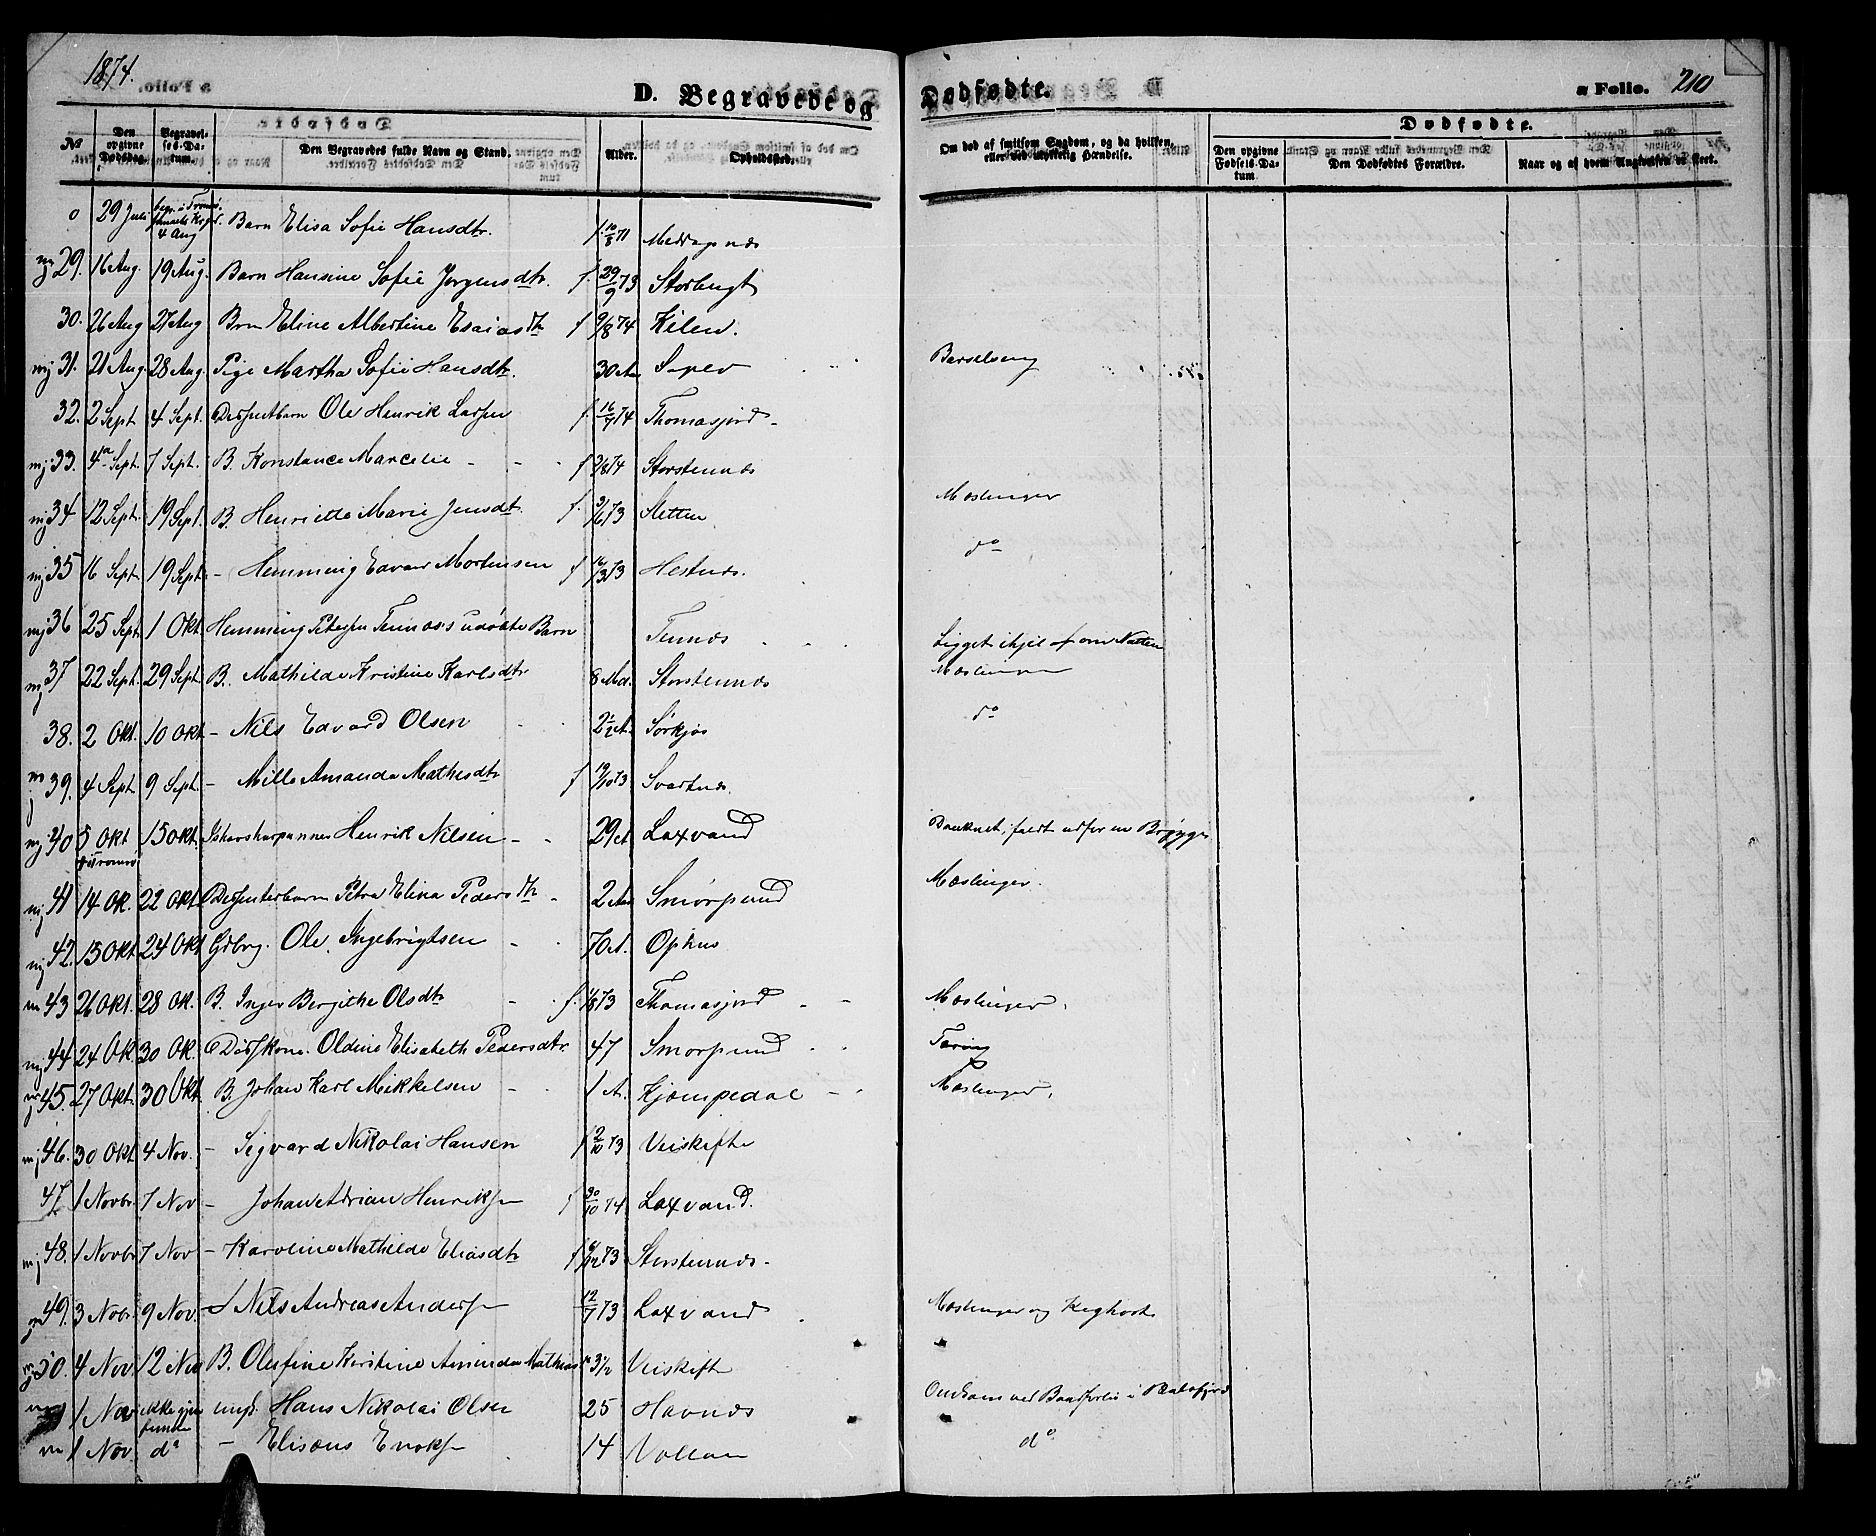 1874.
D. Begravede og
Dødfødte.
a Folio. 210
No
Den opgivne Dødsdag.
Begravelses-Datum.
Den Begravedes fulde Navn og Stand.
Alder.
Opholdssted.
Om død af smitsom Sygdom, og da hvilken, eller ved ulykkelig Hændelse.
Dødfødte.
Den opgivne Fødsels-Datum.
Den Dødfødtes Forældre.
Naar og af hvem Angivelsen er skeet.
0 29 Juli 4 Aug Barn Elisa Sofie Hansdtr. f. 10/8 71
29. 16 Aug. 19 Aug. Barn Hansine Sofie Jørgensdtr. f. 29/9 73 Storbugt
30. 26 Aug 27 Aug Brn Eline Albertine Esaiasdtr f 9/8 74 Kilen.
31. 21 Aug. 28 Aug. Pige Martha Sofie Hansdtr. 30 Barselseng
32. 2 Sept 4 Sept. Ole Henrik Larsen f. 16/7 74 Thomasjord
33. 4 Sept. 7 Sept. B. Konstance Marcelie f Storstennes
34 12 Sept. 19 Sept. B. Henriette Marie Jensdtr. f. Sletten Mæslinger
35 16 Sept. 19 Sept. - Hemming Edvard Mortensen f Hestnæs. do
36 25 Sept. 1 Okt Hemming Petersen Tennæs's udøbte Barn Tennæs Ligget ihjel om Natten
37 22 Sept. 29 Sept. B. Mathilde Kristine Karlsdtr 8 Md. Storstennæs Mæslinger
38. 2 Okt. 10 Okt - Nils Edvard Olsen Sørkjos do
39. 4 Sept. 9 Sept. - Mille Amanda Mathisdtr f 19/10 73 Svartnæs.
40 5 Okt 15 Okt Henrik Nilsen 29 Laxvand Druknet, faldt udfor en Brygge
41 14 Ok. 22 Okt Dissenterbarn Petra Elina Pedersdtr 2 Smørpund Mæslinger.
42. 13 Okt 24 Okt Gdbrg. Ole Ingebrigtsen 70 Ophus
43 26 Okt. 28 Ok. B. Inger Bergithe Olsdtr f. Thomasjord Mæslinger.
44 24 Ok 30 Ok. Oldine Elisabeth Pedersdtr. 47 Smørpund Tæring
45. 27 Okt. 30 Okt. B. Johan Karl Mikkelsen 1 A. Kjempedal Mæslinger.
46. 30 Okt 4 Nov. - Sigvard Nikolai Hansen f 2/10 73 Veiskifte
47 1 Novbr. 7 Nov - Johan Adrian Henriksen f 30/10 74 Laxvand.
48. 1 Novbr 7 Nov - Karoline Mathilde Eliasdtr f Storstennæs.
49. 3 Novbr. 9 Nov. Nils Andreas Andersen 12/7 73 Laxvand Mæslinger og Kighoste
50. 4 Nov 12 Nov B. Olufine Kirstine Amunda Mathis 3 1/2 Veiskifte
1 Nov ikke gjenfunden ungk. Hans Nikolai Olsen 25 Havnæs Omkom ved Baadforlis i Balsfjord
1 Nov do - Elisæus Enoksen 14 Vollan do